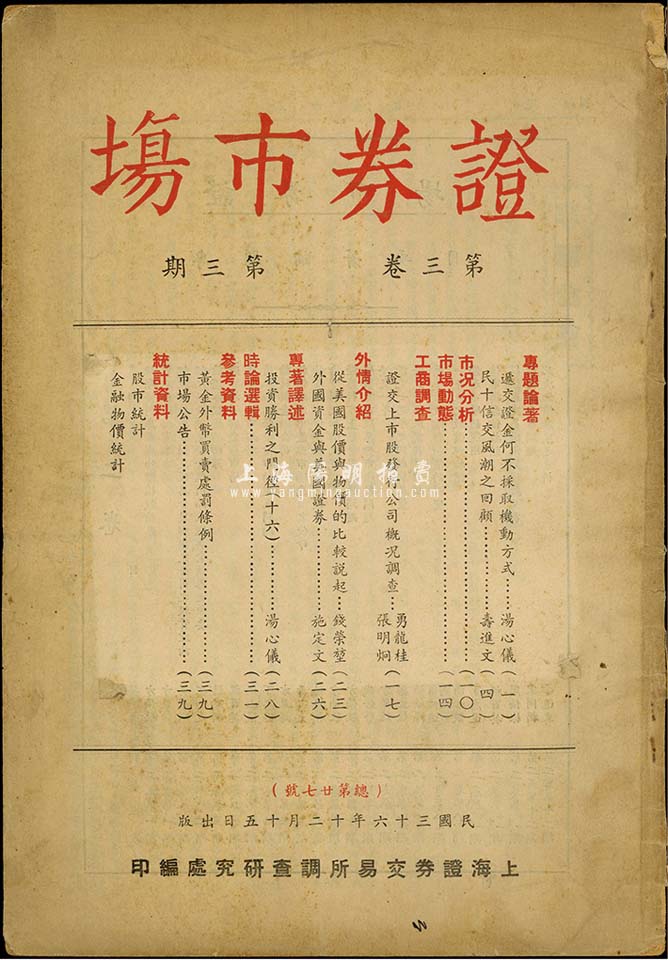 證券市場
第三卷 第三期
專題論著
遞交證金何不採取機動方式……湯心儀(一)
民十信交風潮之回顧……壽進文(四)
市況分析……(一〇)
市場動態……(一四)
工商調查
證交上市股發行公司概況調查…勇龍桂 張明炯(一七)
外情介紹
從美國股價與物價的比較說起…錢榮堃(二三)
外國資金與美國證券……施定文(二六)
專著譯述
投資勝利之門徑(十六)……湯心儀(二八)
時論選輯……(三一)
參考資料
黃金外幣買賣處罰條例……(三九)
市場公告……(三九)
統計資料
股市統計
金融物價統計
上海陽明拍賣
www.yangmingauction.com
(總第廿七號)
民國三十六年十二月十五日出版
上海證券交易所調查研究處編印